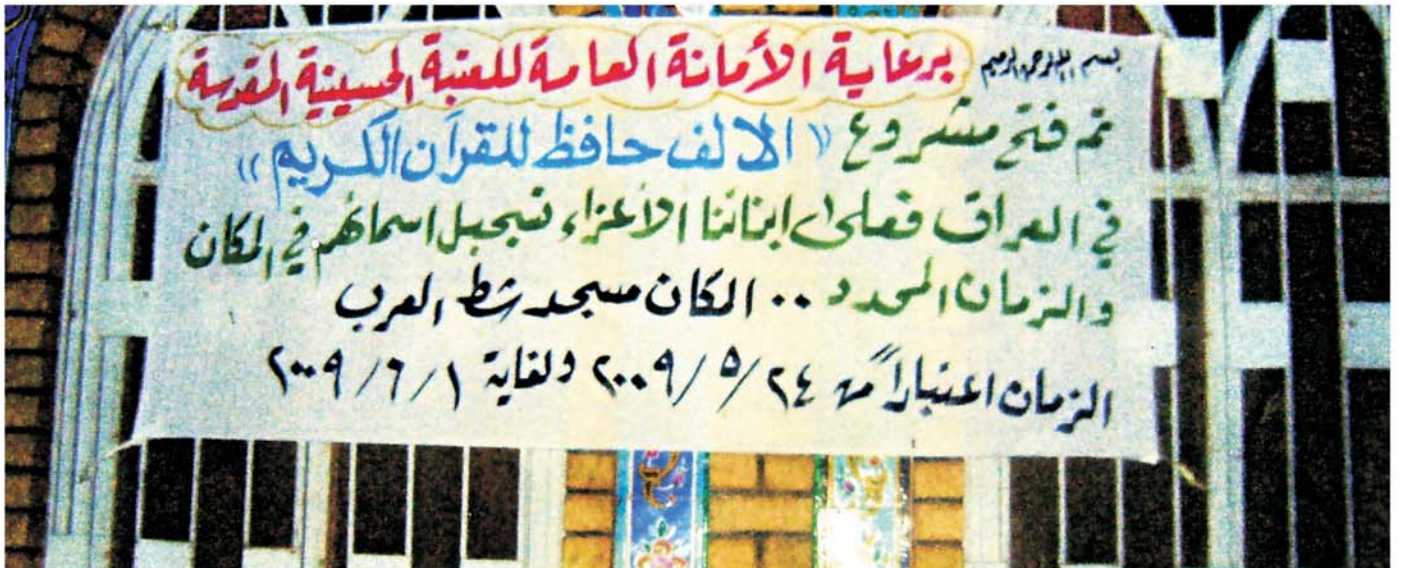 بسم الله الرحمن الرحيم
برعاية الأمانة العامة للعتبة الحسينية المقدسة
تم فتح مشروع « الالف حافظ للقرآن الكريم »
في العراق فعلى ابنائنا الأعزاء تسجيل اسمائهم في المكان
والزمان المحدد .. المكان مسجد شط العرب
الزمان اعتباراً من ٢٤/ ٥/ ٢٠٠٩ ولغاية ١/ ٦/ ٢٠٠٩